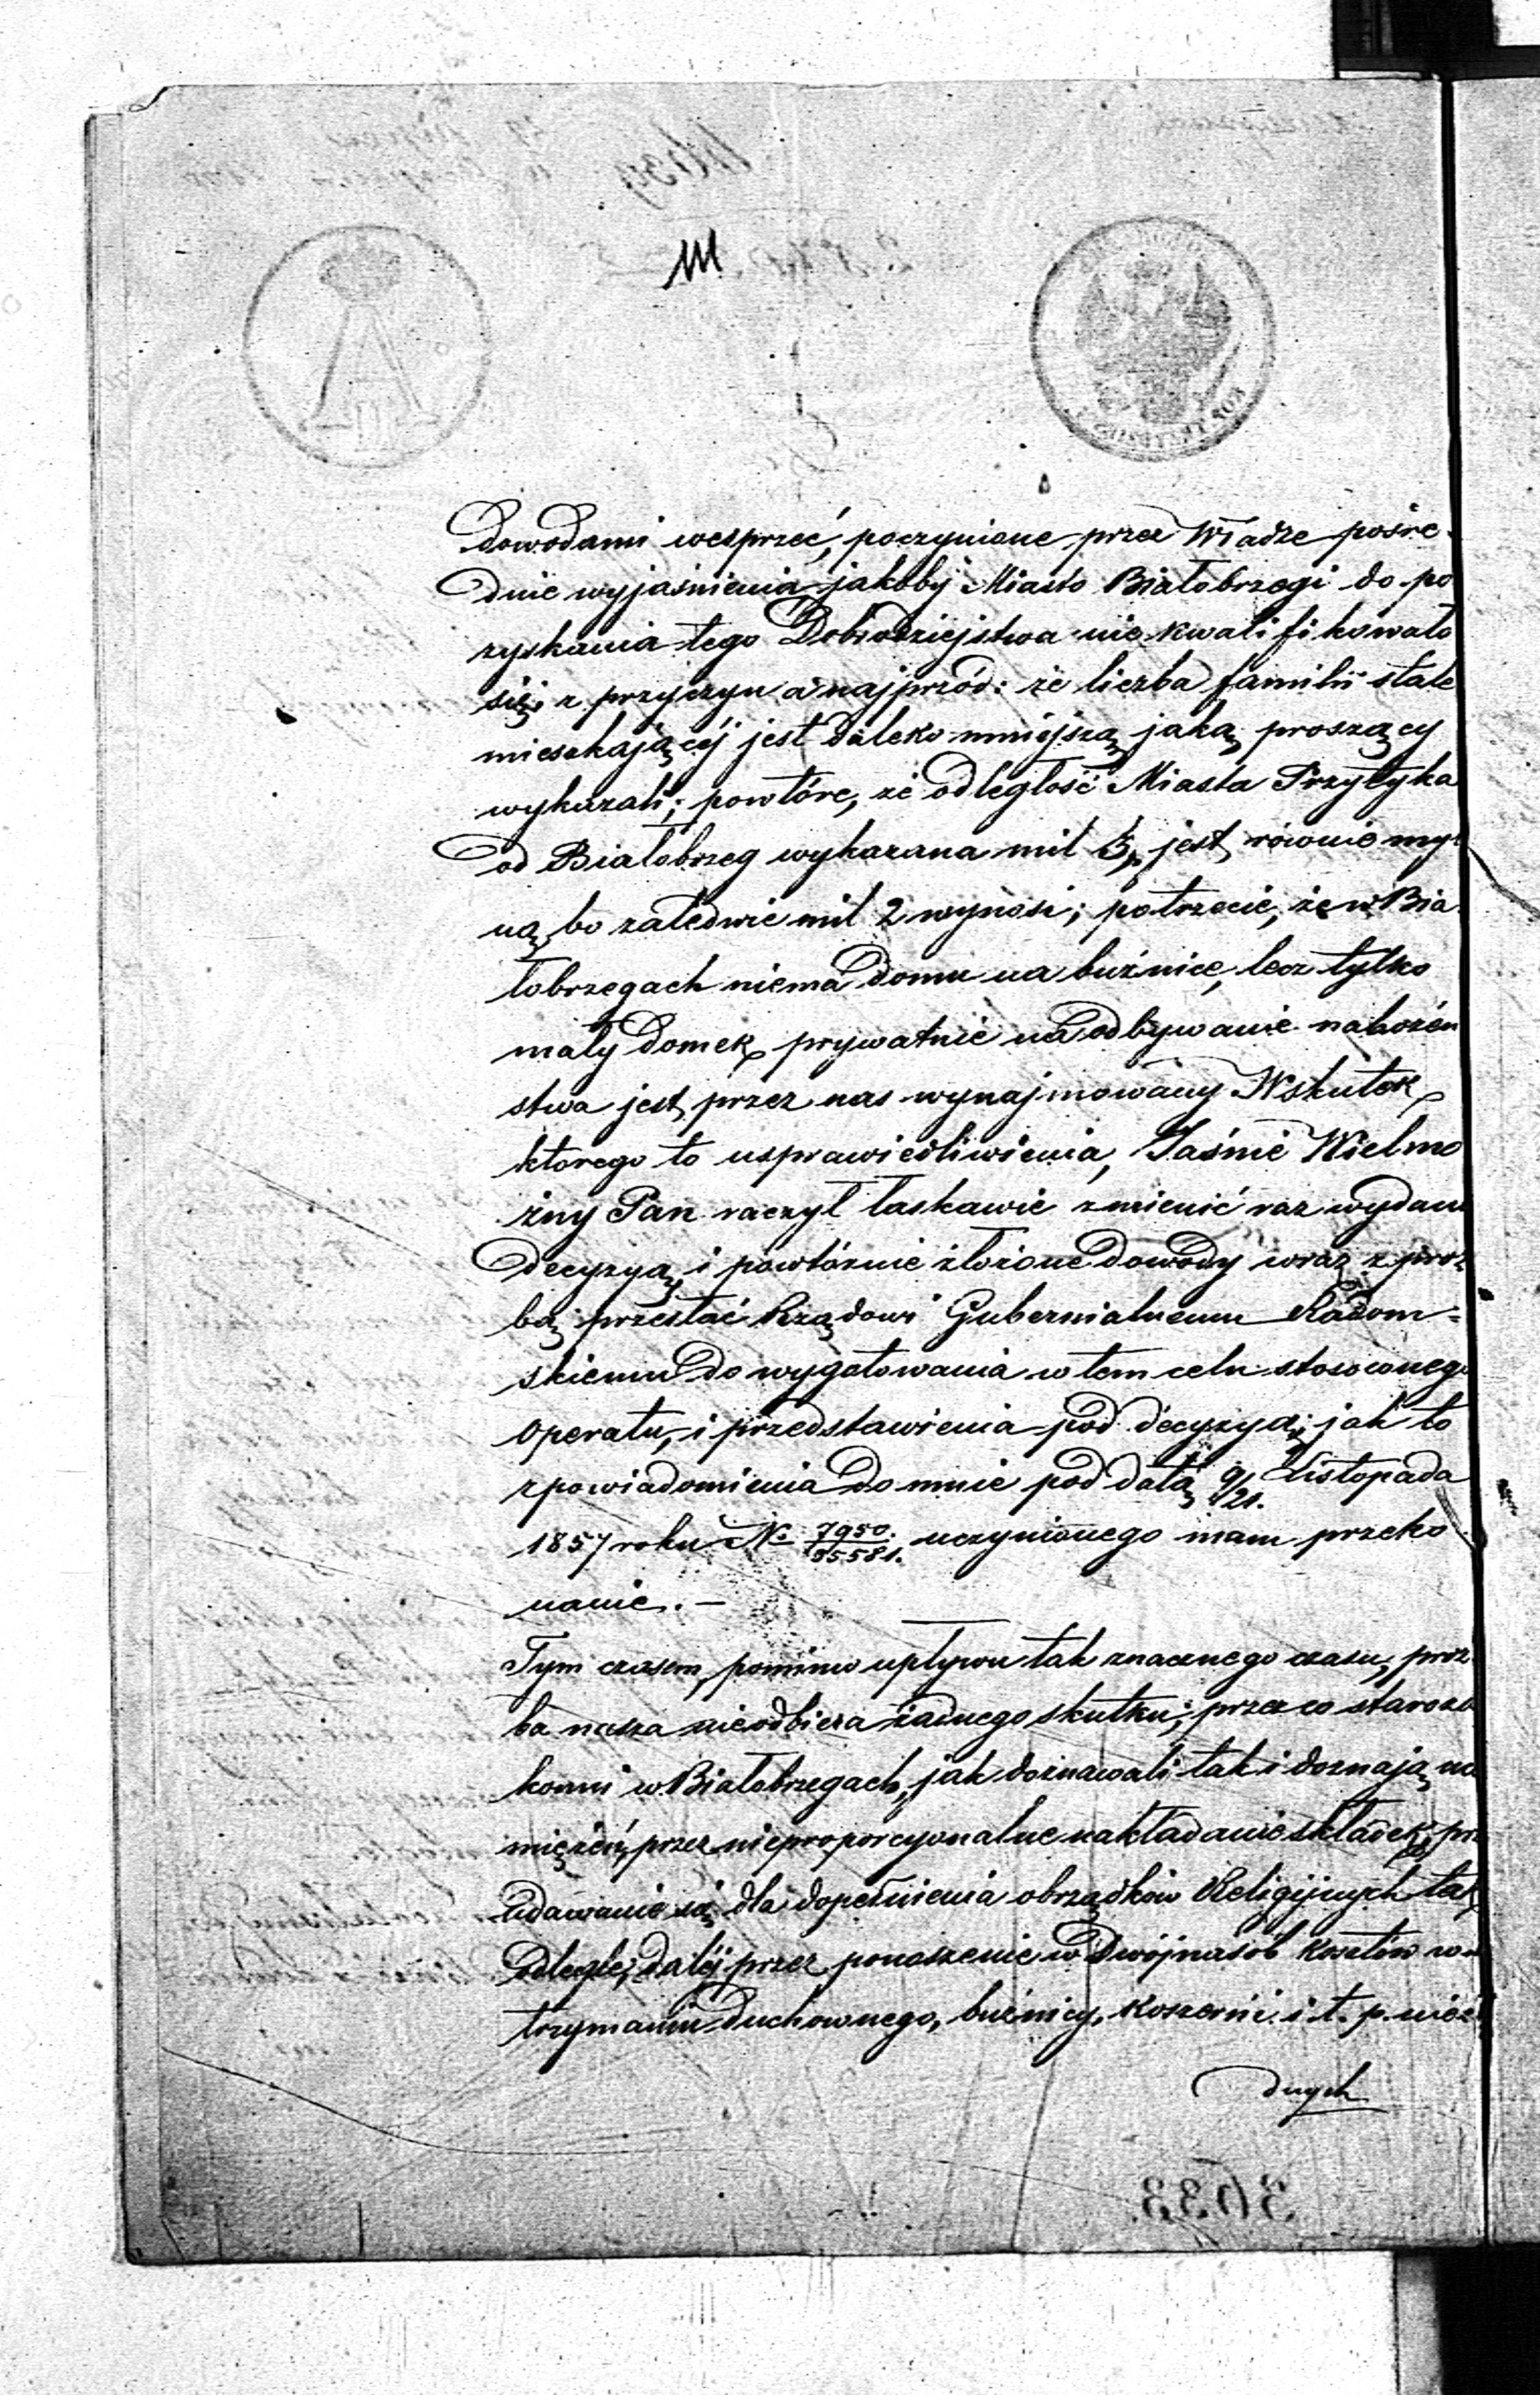 Dowodami wesprzeć, poczynione przez Władze pośre-
dnie wyjaśnienia jakoby Miasto Białobrzegi do po
zyskania tego Dobrodziejstwa nie kwalifikowało
się, z przyczyn a najprzód: że liczba familii stale
mieszkającéj jest daleko mniejszą jaką proszący
wykazali; powtóre, że odległość Miasta Przytyka
od Białobrzeg wykazana mil 3, jest równie myl
ną, bo zaledwie mil 2 wynosi; potrzecie, że w Bia
łobrzegach niema domu na buźnicę, lecz tylko
mały domek prywatnie na odbywanie nabożeń
stwa jest przez nas wynajmowany Wskutek
ktorego to usprawiedliwienia, Jaśnie Wielmo
żny Pan raczył łaskawie zmienić raz wydaną
decyzyą i powtórnie złożone dowody wraz z proź
bą przesłać Rządowi Gubernialnemu Radom=
skiemu do wygotowania w tem celu stosownego
operatu, i przedstawienia pod decyzyą; jak to
z powiadomienia do mnie pod datą 9/21. Listopada
1857 roku N. 7950./35581. uczynionego mam przeko
nanie. —
Tym czasem, pomimo upływu tak znacznego czasu, proź
ba nasza nieodbiera żadnego skutku; przez co staroza
konni w Białobrzegach, jak doznawali tak i doznają na
mięzeń, przez nieproporcyonalne nakładanie składek, prz
udawanie się dla dopełnienia obrządków Religijnych tak
odległe, daléj przez ponoszenie w Dwójnasób kosztów w u
trzymaniu Duchownego, buźnicy, Koszerni i t. p. niez
dnych
3633